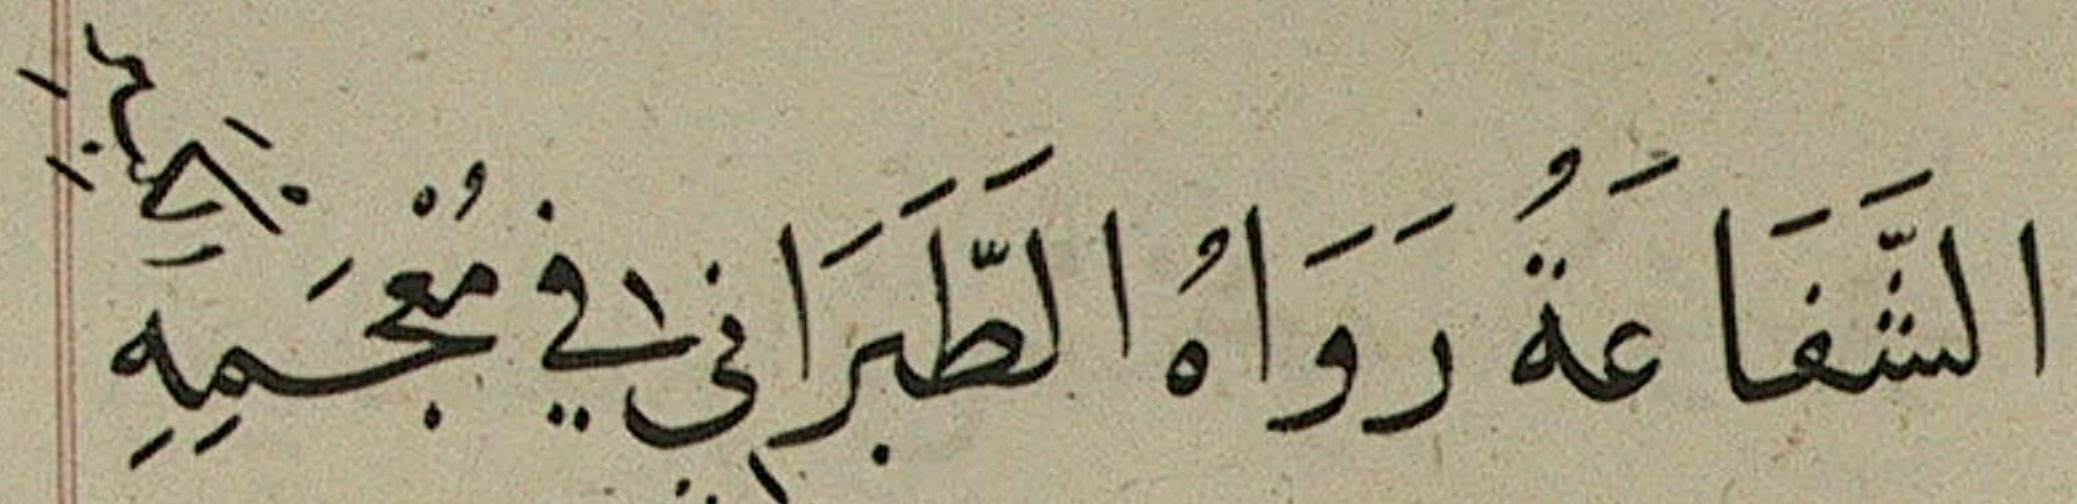 الشَّفَاعَةُ رَوَاهُ الطَّبَرَانِي فِي مُعْجَمِهِ